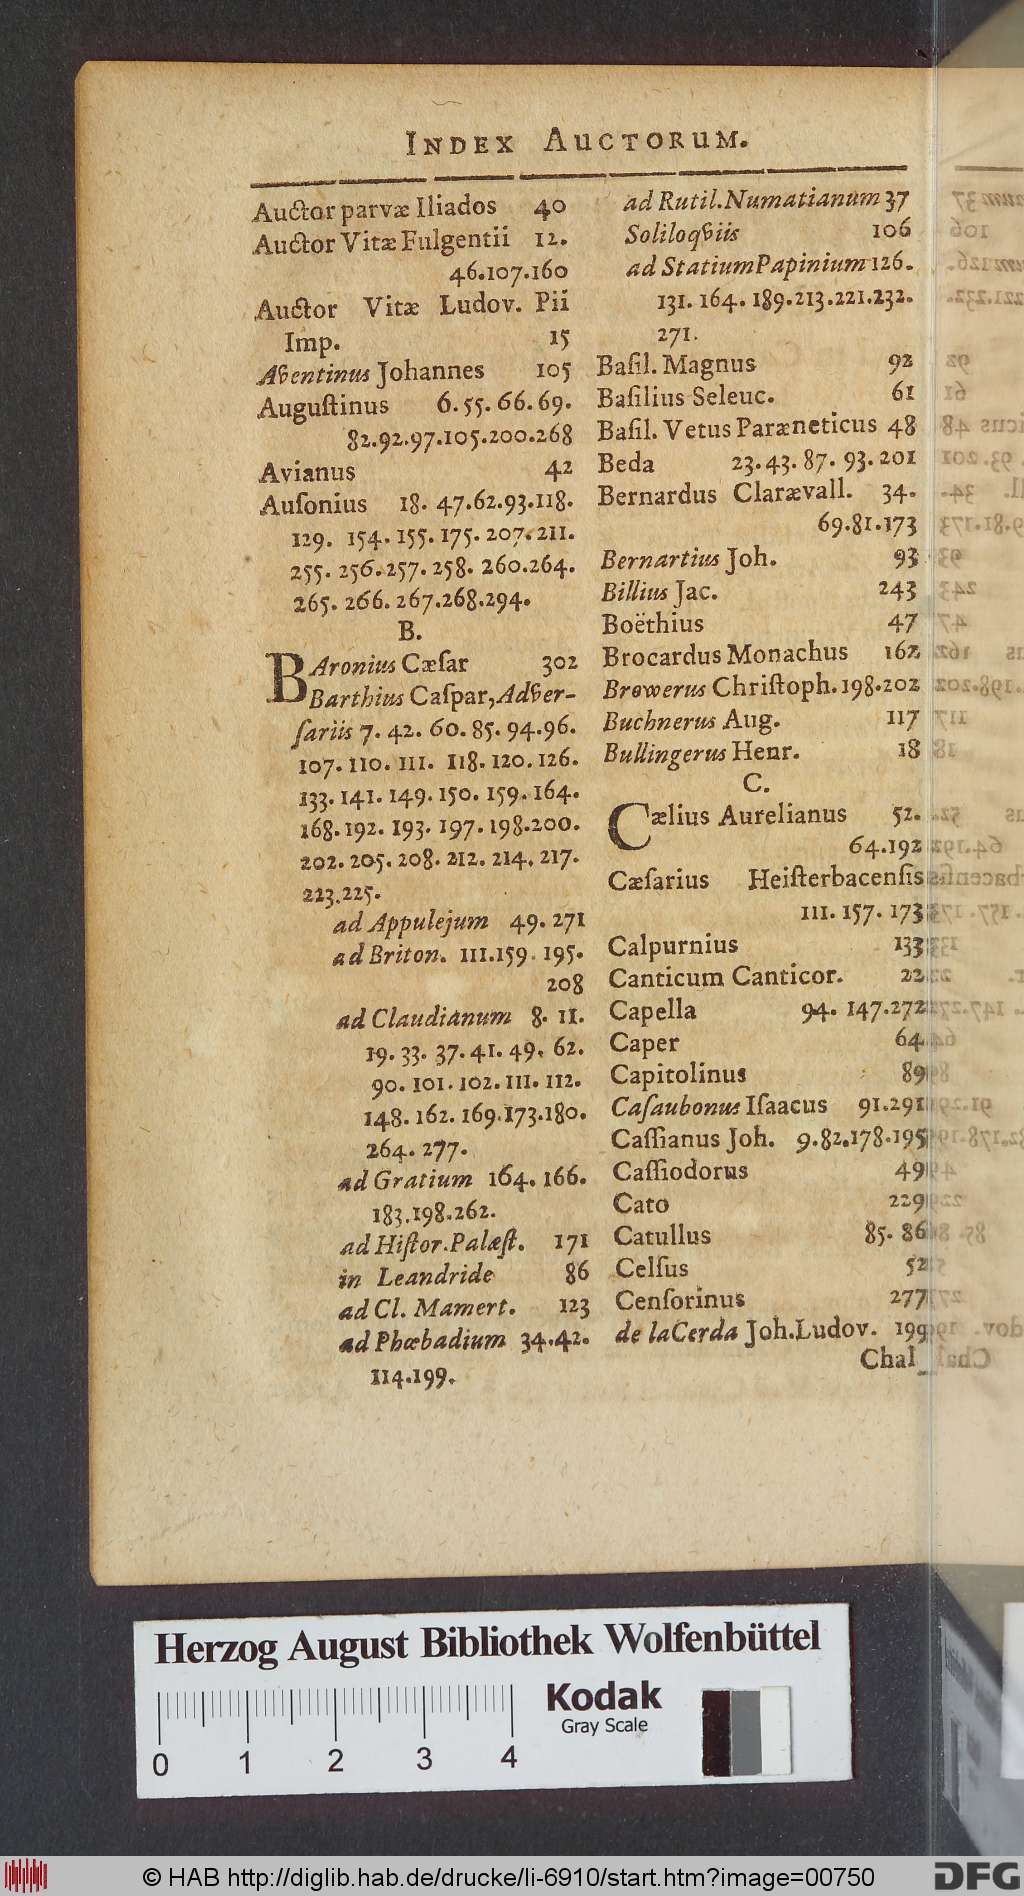 INDEX AUCTORUM.
Auctor parvæ Iliados 40
Auctor Vitæ Fulgentii 12.
46.107.160
Auctor Vitæ Ludov. Pii
Imp. 15
Aventinus Johannes 105
Auguſtinus 6.55.66.69.
82.92.97.105.200.268
Avianus 42
Auſonius 18. 47.62.93.118.
129. 154. 155. 175. 207. 211.
255. 256. 257. 258. 260.264.
265. 266. 267.268.294.
B.
BAronius Cæſar 302
Barthius Caſpar, Adver-
ſariis 7. 42. 60. 85. 94.96.
107. 110. 111. 118. 120. 126.
133. 141. 149. 150. 159. 164.
168. 192. 193. 197. 198.200.
202. 205. 208. 212. 214. 217.
223.225.
ad Appulejum 49. 271
ad Briton. 111.159. 195.
208
ad Claudianum 8. 11.
19. 33. 37. 41. 49. 62.
90. 101. 102. 111. 112.
148. 162. 169.173.180.
264. 277.
ad Gratium 164. 166.
183.198.262.
ad Hiſtor.Palæſt. 171
in Leandride 86
ad Cl. Mamert. 123
ad Phœbadium 34.42.
114.199.
ad Rutil.Numatianum 37
Soliloqviis 106
ad Statium Papinium 126.
131. 164. 189.213.221.232.
271.
Baſil. Magnus 92
Baſilius Seleuc. 61
Baſil. Vetus Paræneticus 48
Beda 23. 43. 87. 93. 201
Bernardus Clarævall. 34.
69.81.173
Bernartius Joh. 93
Billius Jac. 243
Boëthius 47
Brocardus Monachus 162
Browerus Chriſtoph. 198.202
Buchnerus Aug. 117
Bullingerus Henr. 18
C.
Cælius Aurelianus 52.
64.192
Cæſarius Heiſterbacenſis
111. 157. 173
Calpurnius 133
Canticum Canticor. 22
Capella 94. 147.272
Caper 64
Capitolinus 89
Caſaubonus Iſaacus 91.291
Caſſianus Joh. 9.82.178.195
Caſſiodorus 49
Cato 229
Catullus 85. 86
Celſus 52
Cenſorinus 277
de la Cerda Joh.Ludov. 199
Chal
Herzog August Bibliothek Wolfenbüttel
Kodak
Gray Scale
0 1 2 3 4
© HAB http://diglib.hab.de/drucke/li-6910/start.htm?image=00750
DFG